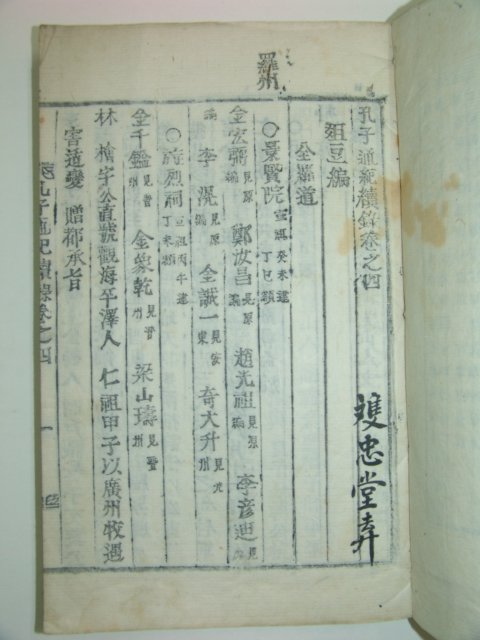 孔子通紀續錄卷之四
俎豆編
全羅道
羅州
○景賢院 宣祖癸未建 丁巳額
金宏弼 見原編 鄭汝昌 見原編 趙光祖 見原編 李彦迪 見原編
李滉 見原編 金誠一 見安東 奇大升 見光州
○旌烈祠 宣祖丙午建 丁未額
金千鎰 見晉州 金象乾 見晉州 梁山璹 見晉州
林檜字公直號觀海平澤人 仁祖甲子以廣州牧遇
害适變 贈都承旨
孔子通紀續錄卷之四 一
雙忠堂弆